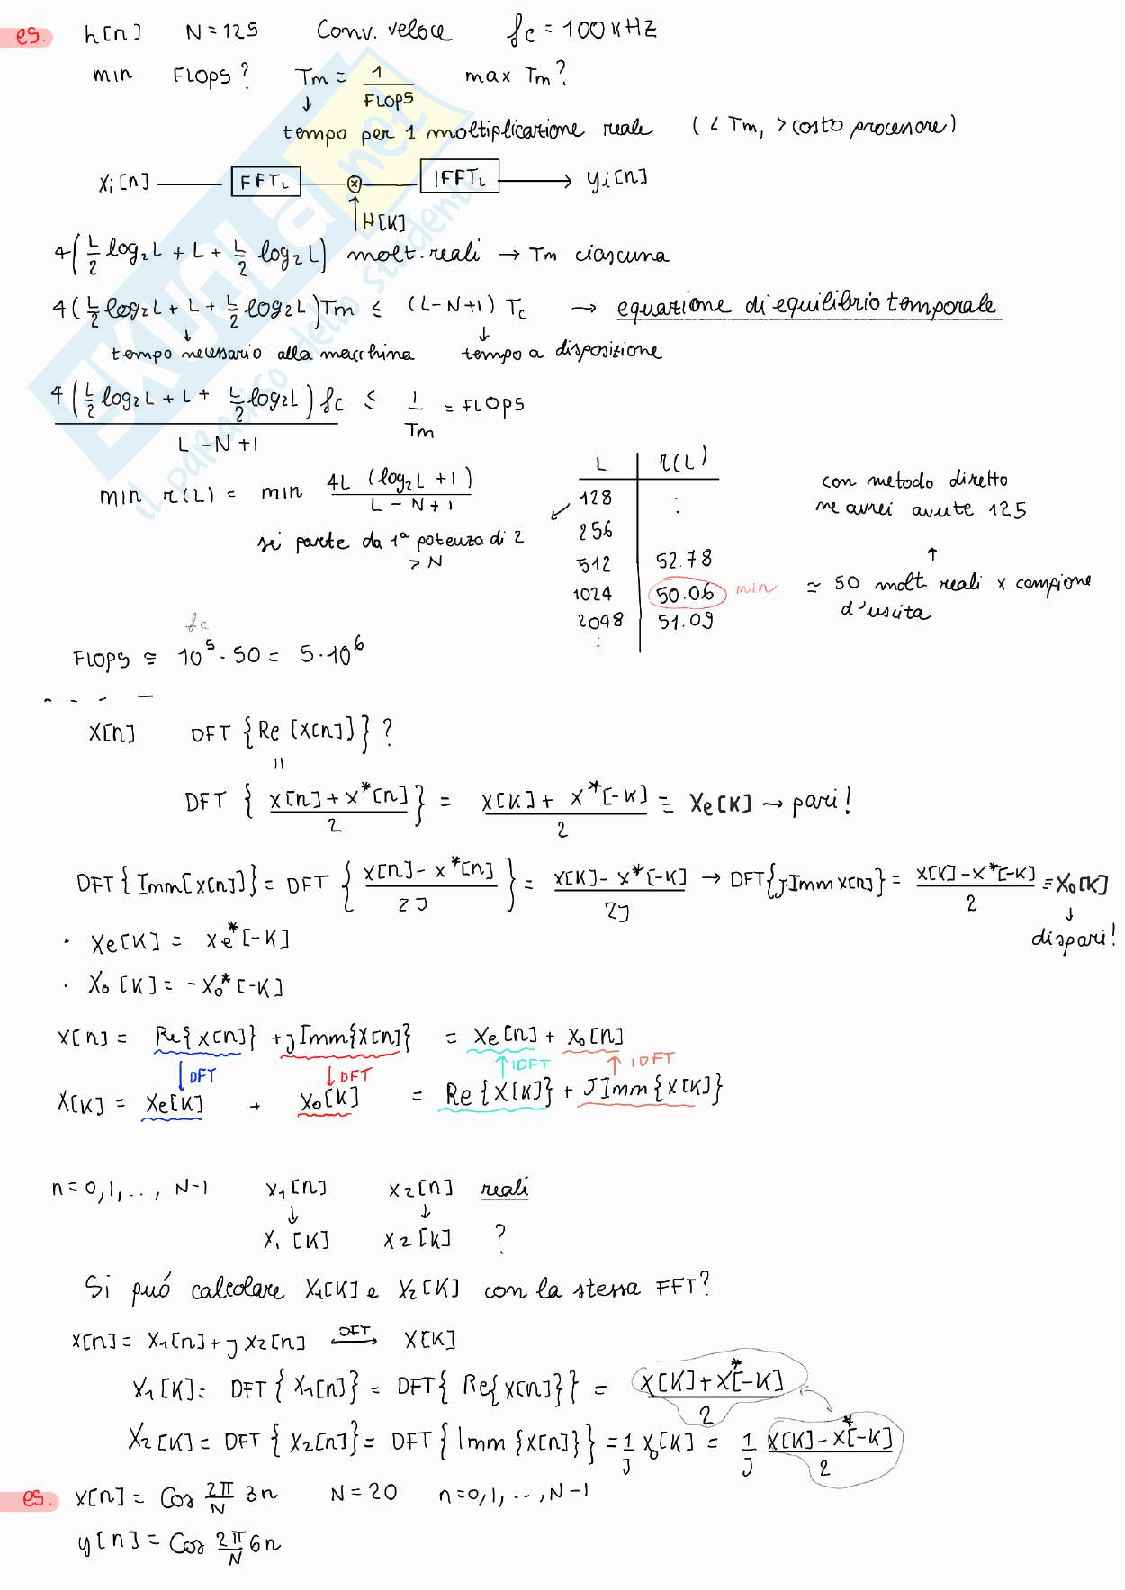 es. h[n] N=125 Conv. veloce fc = 100 kHZ
min FLOPS? Tm = 1/FLOPS max Tm?
↓ tempo per 1 moltiplicazione reale (< Tm, > costo processore)
xi[n] — FFT_L — ⊗ — IFFT_L → yi[n]
↑ H[K]
4(L/2 log₂L + L + L/2 log₂L) molt. reali → Tm ciascuna
4(L/2 log₂L + L + L/2 log₂L)Tm ≤ (L-N+1) Tc → equazione di equilibrio temporale
↓ tempo necessario alla macchina ↓ tempo a disposizione
4(L/2 log₂L + L + L/2 log₂L) fc / (L-N+1) ≤ 1/Tm = FLOPS
min r(L) = min 4L (log₂L+1) / (L-N+1)
si parte da 1ª potenza di 2 > N
L r(L)
128 :
256
512 52.78
1024 50.06 min
2098 51.09
:
con metodo diretto
ne avrei avute 125
↑
≃ 50 molt reali x campione
d'uscita
fc
FLOPS ≅ 10⁵ · 50 = 5·10⁶
x[n] DFT {Re [x[n]]} ?
"
DFT { (x[n] + x*[n])/2 } = (X[K] + X*[-K])/2 = Xe[K] → pari!
DFT{Imm[x[n]]} = DFT { (x[n] - x*[n])/2J } = (X[K] - X*[-K])/2J → DFT{J Imm x[n]} = (X[K] - X*[-K])/2 = Xo[K]
↓
dispari!
· Xe[K] = Xe*[-K]
· Xo[K] = -Xo*[-K]
x[n] = Re{x[n]} + j Imm{x[n]} = xe[n] + xo[n]
↓DFT ↓DFT ↑IDFT ↑IDFT
X[K] = Xe[K] + Xo[K] = Re{X[K]} + J Imm{X[K]}
n=0,1,.., N-1 x1[n] x2[n] reali
↓ ↓
X1[K] X2[K] ?
Si può calcolare X1[K] e X2[K] con la stessa FFT?
x[n] = x1[n] + J x2[n] DFT→ X[K]
X1[K] = DFT{x1[n]} = DFT{Re{x[n]}} = (X[K] + X*[-K])/2
X2[K] = DFT{x2[n]} = DFT{Imm{x[n]}} = 1/J Xo[K] = 1/J (X[K] - X*[-K])/2
es. x[n] = Cos 2π/N 3n N=20 n=0,1,..,N-1
y[n] = Cos 2π/N 6n
EKUOLA.net
il paradiso dello studente